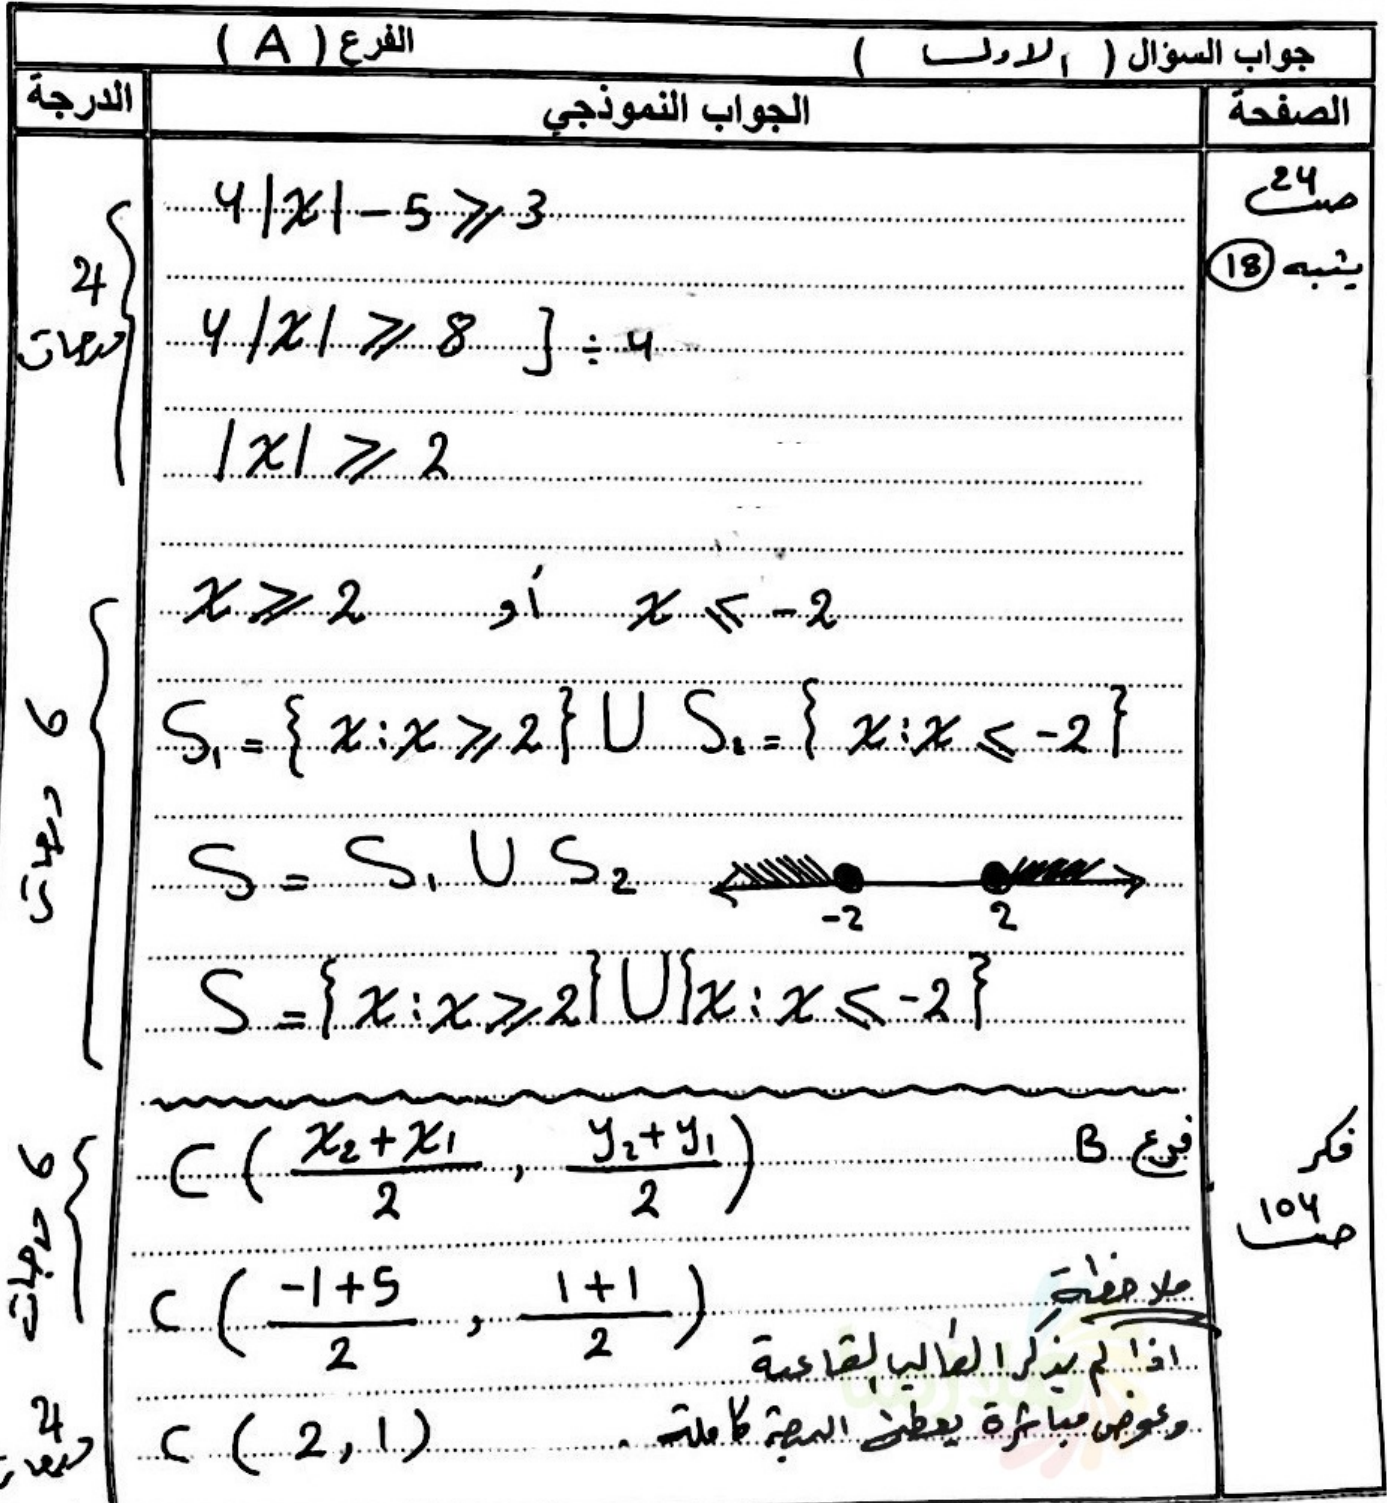 جواب السؤال ( الاول ) الفرع ( A )
الصفحة الجواب النموذجي الدرجة
4|x| - 5 ≥ 3
ص 24
يشبه 18
4 درجات
4|x| ≥ 8 ] ÷ 4
|x| ≥ 2
x ≥ 2 أو x ≤ -2
6 درجات
S₁ = { x : x ≥ 2 } ∪ S₂ = { x : x ≤ -2 }
S = S₁ ∪ S₂
-2 2
S = { x : x ≥ 2 } ∪ { x : x ≤ -2 }
فرع B
C ( (x₂ + x₁)/2 , (y₂ + y₁)/2 )
فكر
ص 104
6 درجات
C ( (-1+5)/2 , (1+1)/2 )
ملاحظة
اذا لم يذكر الطالب القاعدة
وعوض مباشرة يعطى الدرجة كاملة .
C ( 2 , 1 )
4 درجات